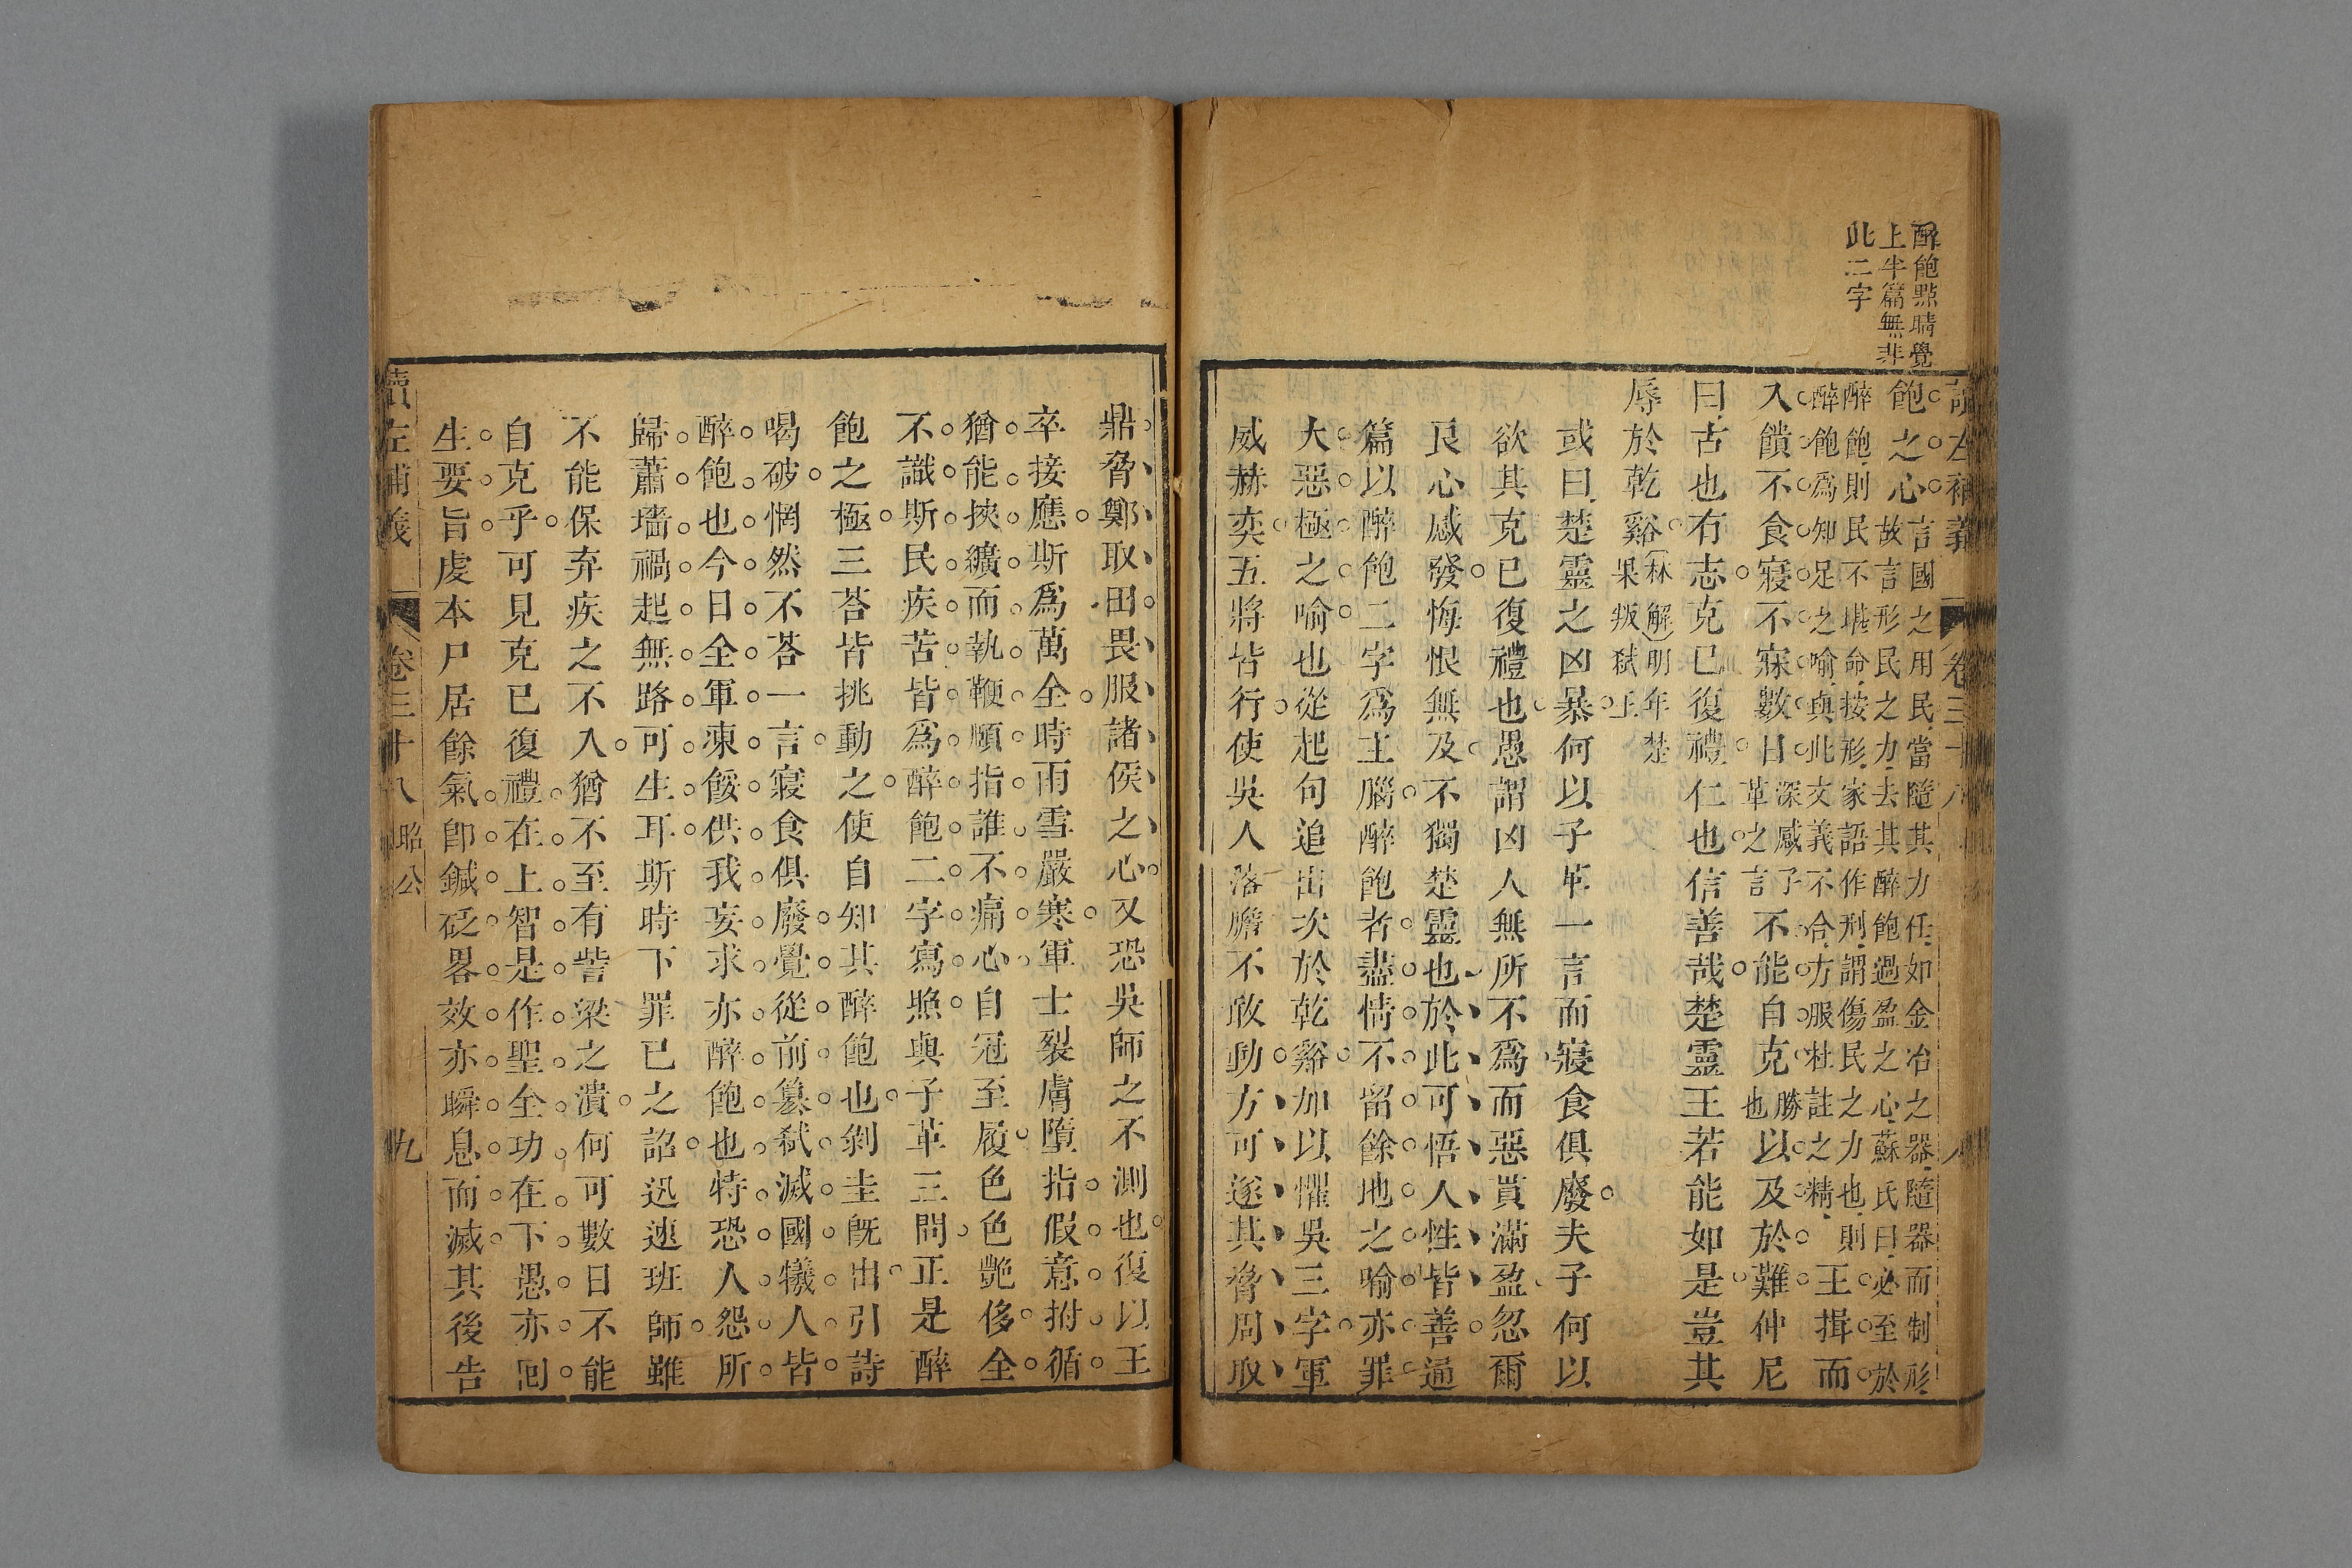 醉飽點睛覺
上半篇無非
此二字
讀左補義
卷三十八
飽之心言國之用民當隨其力任如金冶之器隨器而制形
故言形民之力去其醉飽過盈之心蘇氏曰必至於
醉飽則民不堪命按形家語作刑謂傷民之力也則
醉飽爲知足之喻與此文義不合方服杜註之精王揖而
入饋不食寢不寐數日深感子
革之言不能自克勝
也以及於難仲尼
曰古也有志克己復禮仁也信善哉楚靈王若能如是豈其
辱於乾谿林解明年楚
果叛弒王
或曰楚靈之凶暴何以子革一言而寢食俱廢夫子何以
欲其克已復禮也愚謂凶人無所不爲而惡貫滿盈忽爾
良心感發悔恨無及不獨楚靈也於此可悟人性皆善通
篇以醉飽二字爲主腦醉飽者盡情不留餘地之喻亦罪
大惡極之喻也從起句追出次於乾谿加以懼吳三字軍
威赫奕五將皆行使吳人落膽不敢動方可遂其脅周取
鼎脅鄭取田畏服諸侯之心又恐吳師之不測也復以王
卒接應斯爲萬全時雨雪嚴寒軍士裂膚墮指假意拊循
猶能挾纊而執鞭順指誰不痛心自冠至履色色艷侈全
不識斯民疾苦皆爲醉飽二字寫照與子革三問正是醉
飽之極三荅皆挑動之使自知其醉飽也剝圭旣出引詩
喝破惘然不荅一言寢食俱廢覺從前簒弒滅國犧人皆
醉飽也今日全軍凍餒供我妄求亦醉飽也特恐人怨所
歸蕭墻禍起無路可生耳斯時下罪已之詔迅速班師雖
不能保弃疾之不入猶不至有訾梁之潰何可數日不能
自克乎可見克已復禮在上智是作聖全功在下愚亦囘
生要旨虔本尸居餘氣卽鍼砭畧效亦瞬息而滅其後告
讀左補義
卷三十八
昭公
九